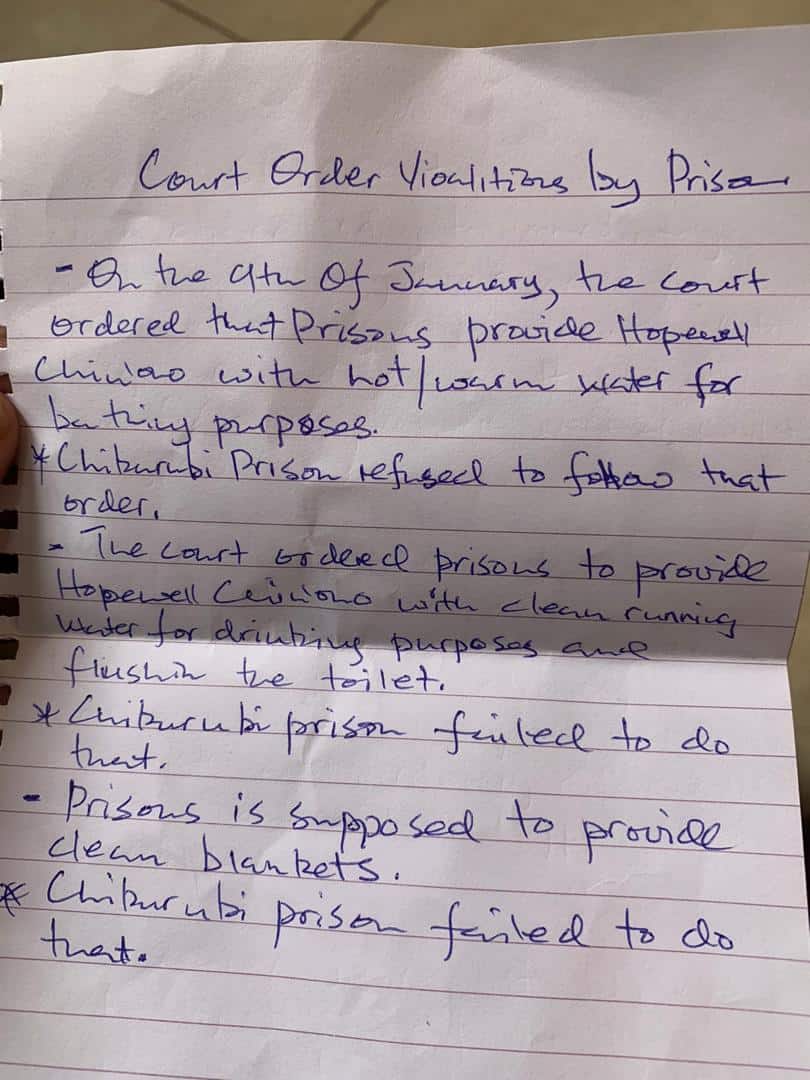 Court Order Vioalitions by Prison
- On the 9th Of January, the court
ordered that Prisons provide Hopewell
Chin'ono with hot/warm water for
bathing purposes.
* Chikurubi Prison refused to follow that
order.
- The court ordered prisons to provide
Hopewell Chin'ono with clean running
water for drinking purposes and
flushin the toilet.
* Chikurubi prison failed to do
that.
- Prisons is supposed to provide
clean blankets.
* Chikurubi prison failed to do
that.